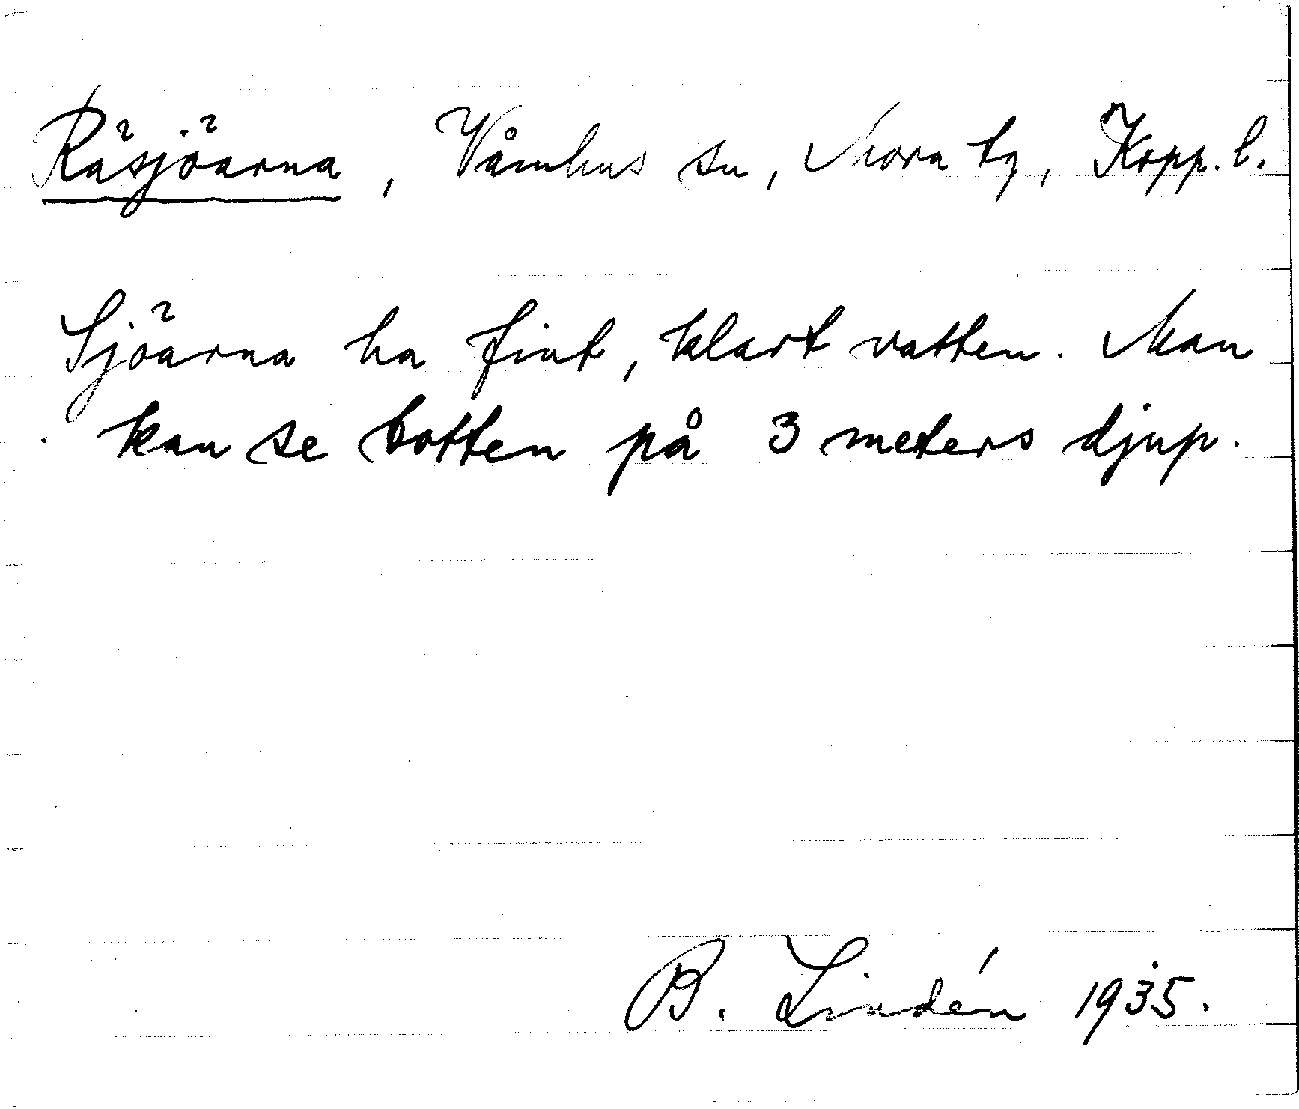 Räsjöarna, Våmhus sn, Mora tg, Kopp. l.
Sjöarna ha fint, klart vatten. Man
kan se botten på 3 meters djup.
B. Lindén 1935.